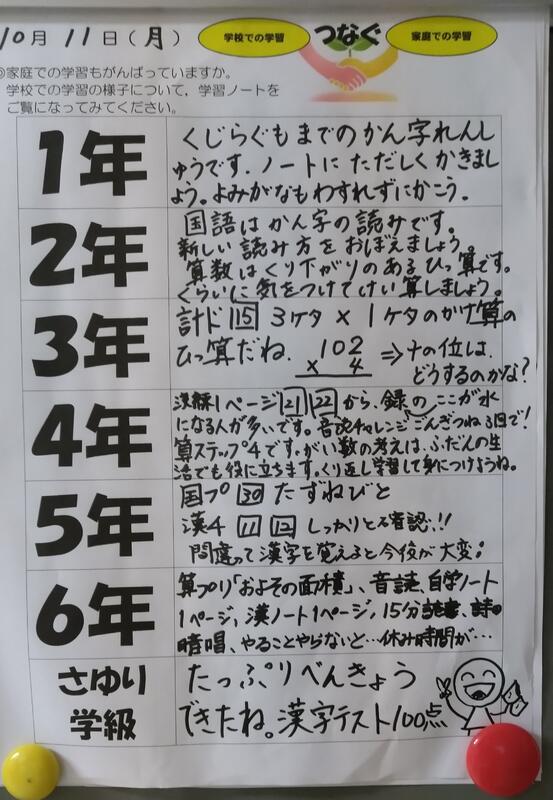 10月 11日(月)
学校での学習
つなぐ
家庭での学習
◎家庭での学習もがんばっていますか。
学校での学習の様子について，学習ノートを
ご覧になってみてください。
1年
くじらぐもまでのかん字れんし
ゅうです。ノートに ただしく かきまし
ょう。よみがなもわすれずにかこう。
2年
国語はかん字の読みです。
新しい読み方をおぼえましょう。
算数はくり下がりのあるひっ算です。
くらいに気をつけてけい算しましょう。
3年
計ド 15 3ケタ × 1ケタのかけ算の
ひっ算だね.
102
× 4
⇒十の位は、
どうするのかな?
4年
漢練1ページ 21 22 から、録の ここが水
になる人が多いです。音読チャレンジごんぎつね3回で!
算ステップ4です。がい数の考えは、ふだんの生
活でも役に立ちます。くり返し学習して身につけようね。
5年
国プ 30 たずねびと
漢4 11 12 しっかりとる確認!!
間違って漢字を覚えると今後が大変!
6年
算プリ「およその面積」、音読、自学ノート
1ページ、漢ノート1ページ、15分読書、詩の
暗唱、やることやらないと…休み時間が…
さゆり
学級
たっぷりべんきょう
できたね。漢字テスト100点